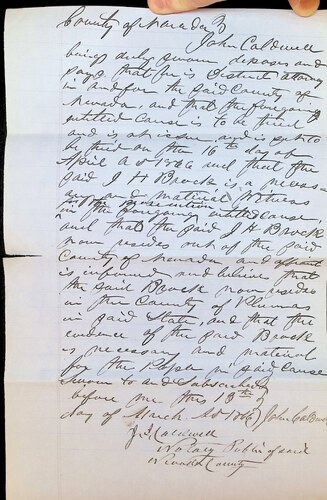 County of Nevada }
John Caldwell
being duly sworn deposes and
says that he is District attorney
in and for the said County of
Nevada, and that the foregoing
entitled cause is to be tried
and is at issue and is set to
be tried on the 16th day of
April A D 1866 and that the
said J H Brock is a necess
ary and material Witness
for the prosecution
in the foregoing entitled cause,
and that the said J H Brock
now resides out of the said
County of Nevada and affiant
is informed and believe that
the said Brock now resides
in the County of Plumas
in said State, and that the
evidence of the said Brock
is necessary and material
for the People in said cause
Sworn to and subscribed
before me this 13th
day of March A D 1866 } John Caldwell
J. I. Caldwell
Notary Public of said
Nevada County